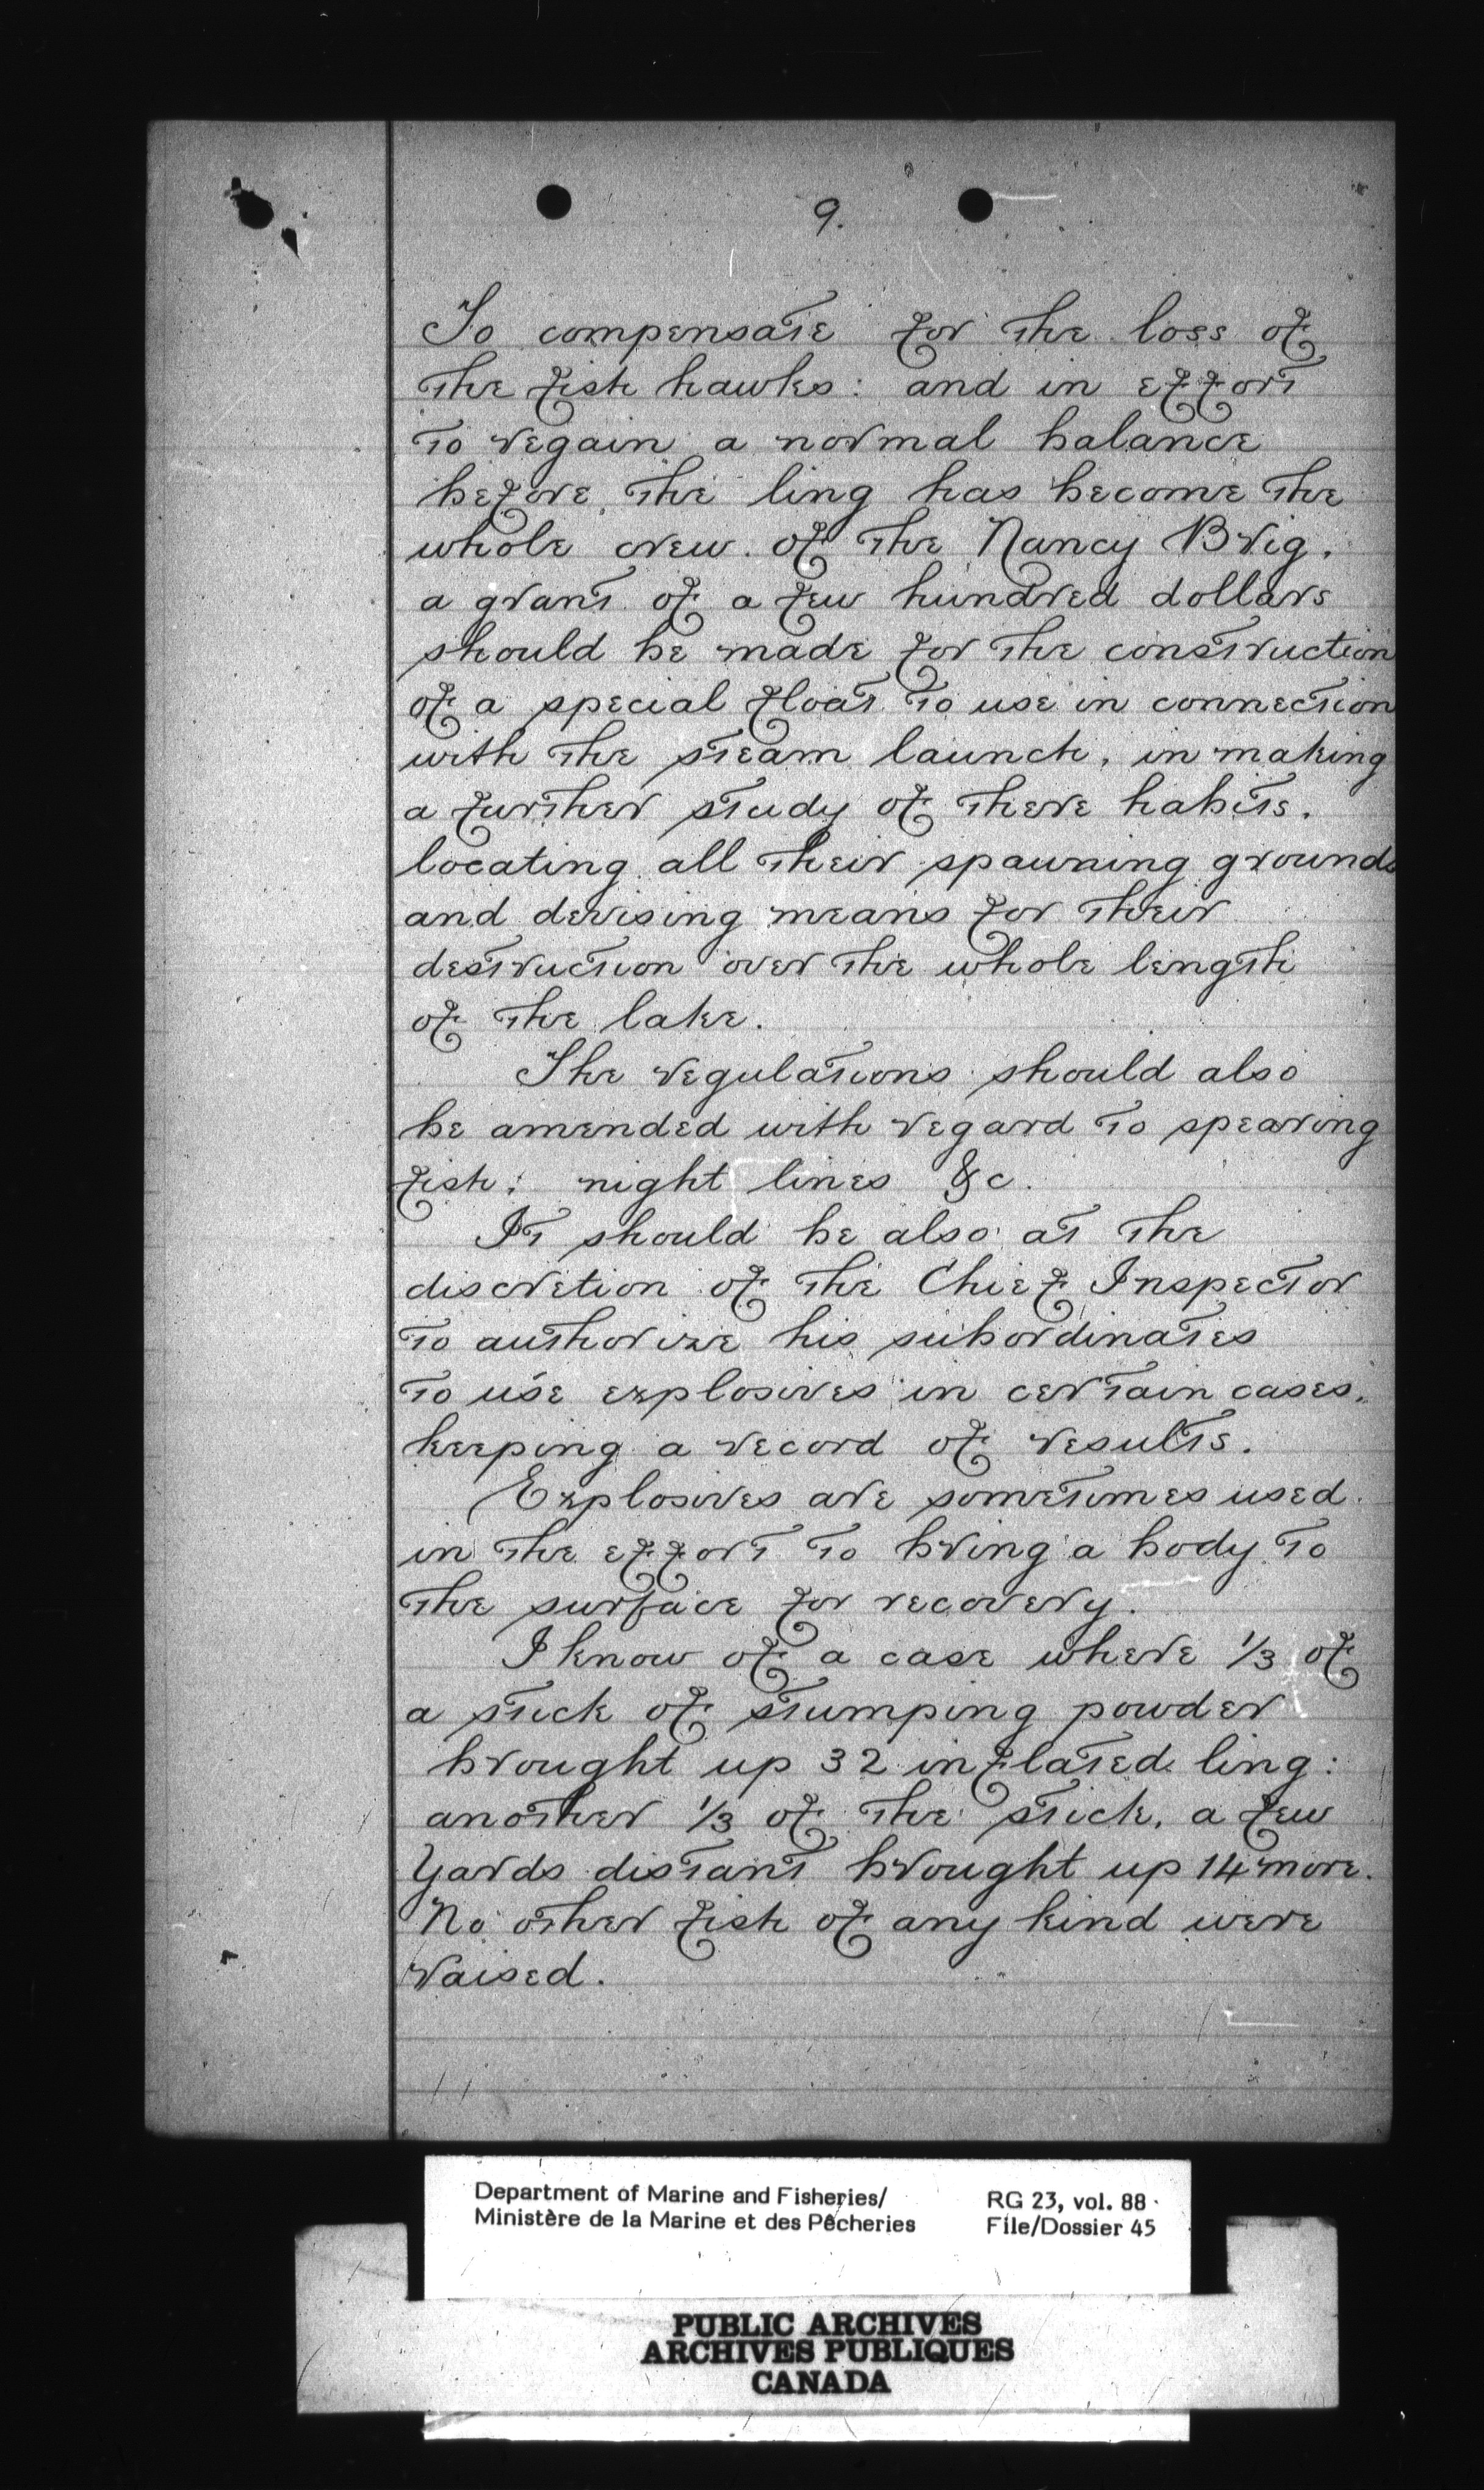 9.
To compensate for the loss of
the fish hawks: and in effort
to regain a normal balance
before, the ling has become the
whole crew of the Nancy Brig,
a grant of a few hundred dollars
should be made for the construction
of a special float to use in connection
with the steam launch, in making
a further study of there habits,
locating all their spawning grounds
and devising means for their
destruction over the whole length
of the lake.
The regulations should also
be amended with regard to spearing
fish; night lines &c.
It should be also at the
discretion of the Chief Inspector
to authorize his subordinates
to use explosives in certain cases,
keeping a record of results.
Explosives are sometimes used
in the effort to bring a body to
the surface for recovery.
I know of a case where 1/3 of
a stick of stumping powder
brought up 32 inflated ling:
another 1/3 of the stick, a few
yards distant brought up 14 more.
No other fish of any kind were
raised.
Department of Marine and Fisheries/
Ministère de la Marine et des Pêcheries
RG 23, vol. 88
File/Dossier 45
PUBLIC ARCHIVES
ARCHIVES PUBLIQUES
CANADA